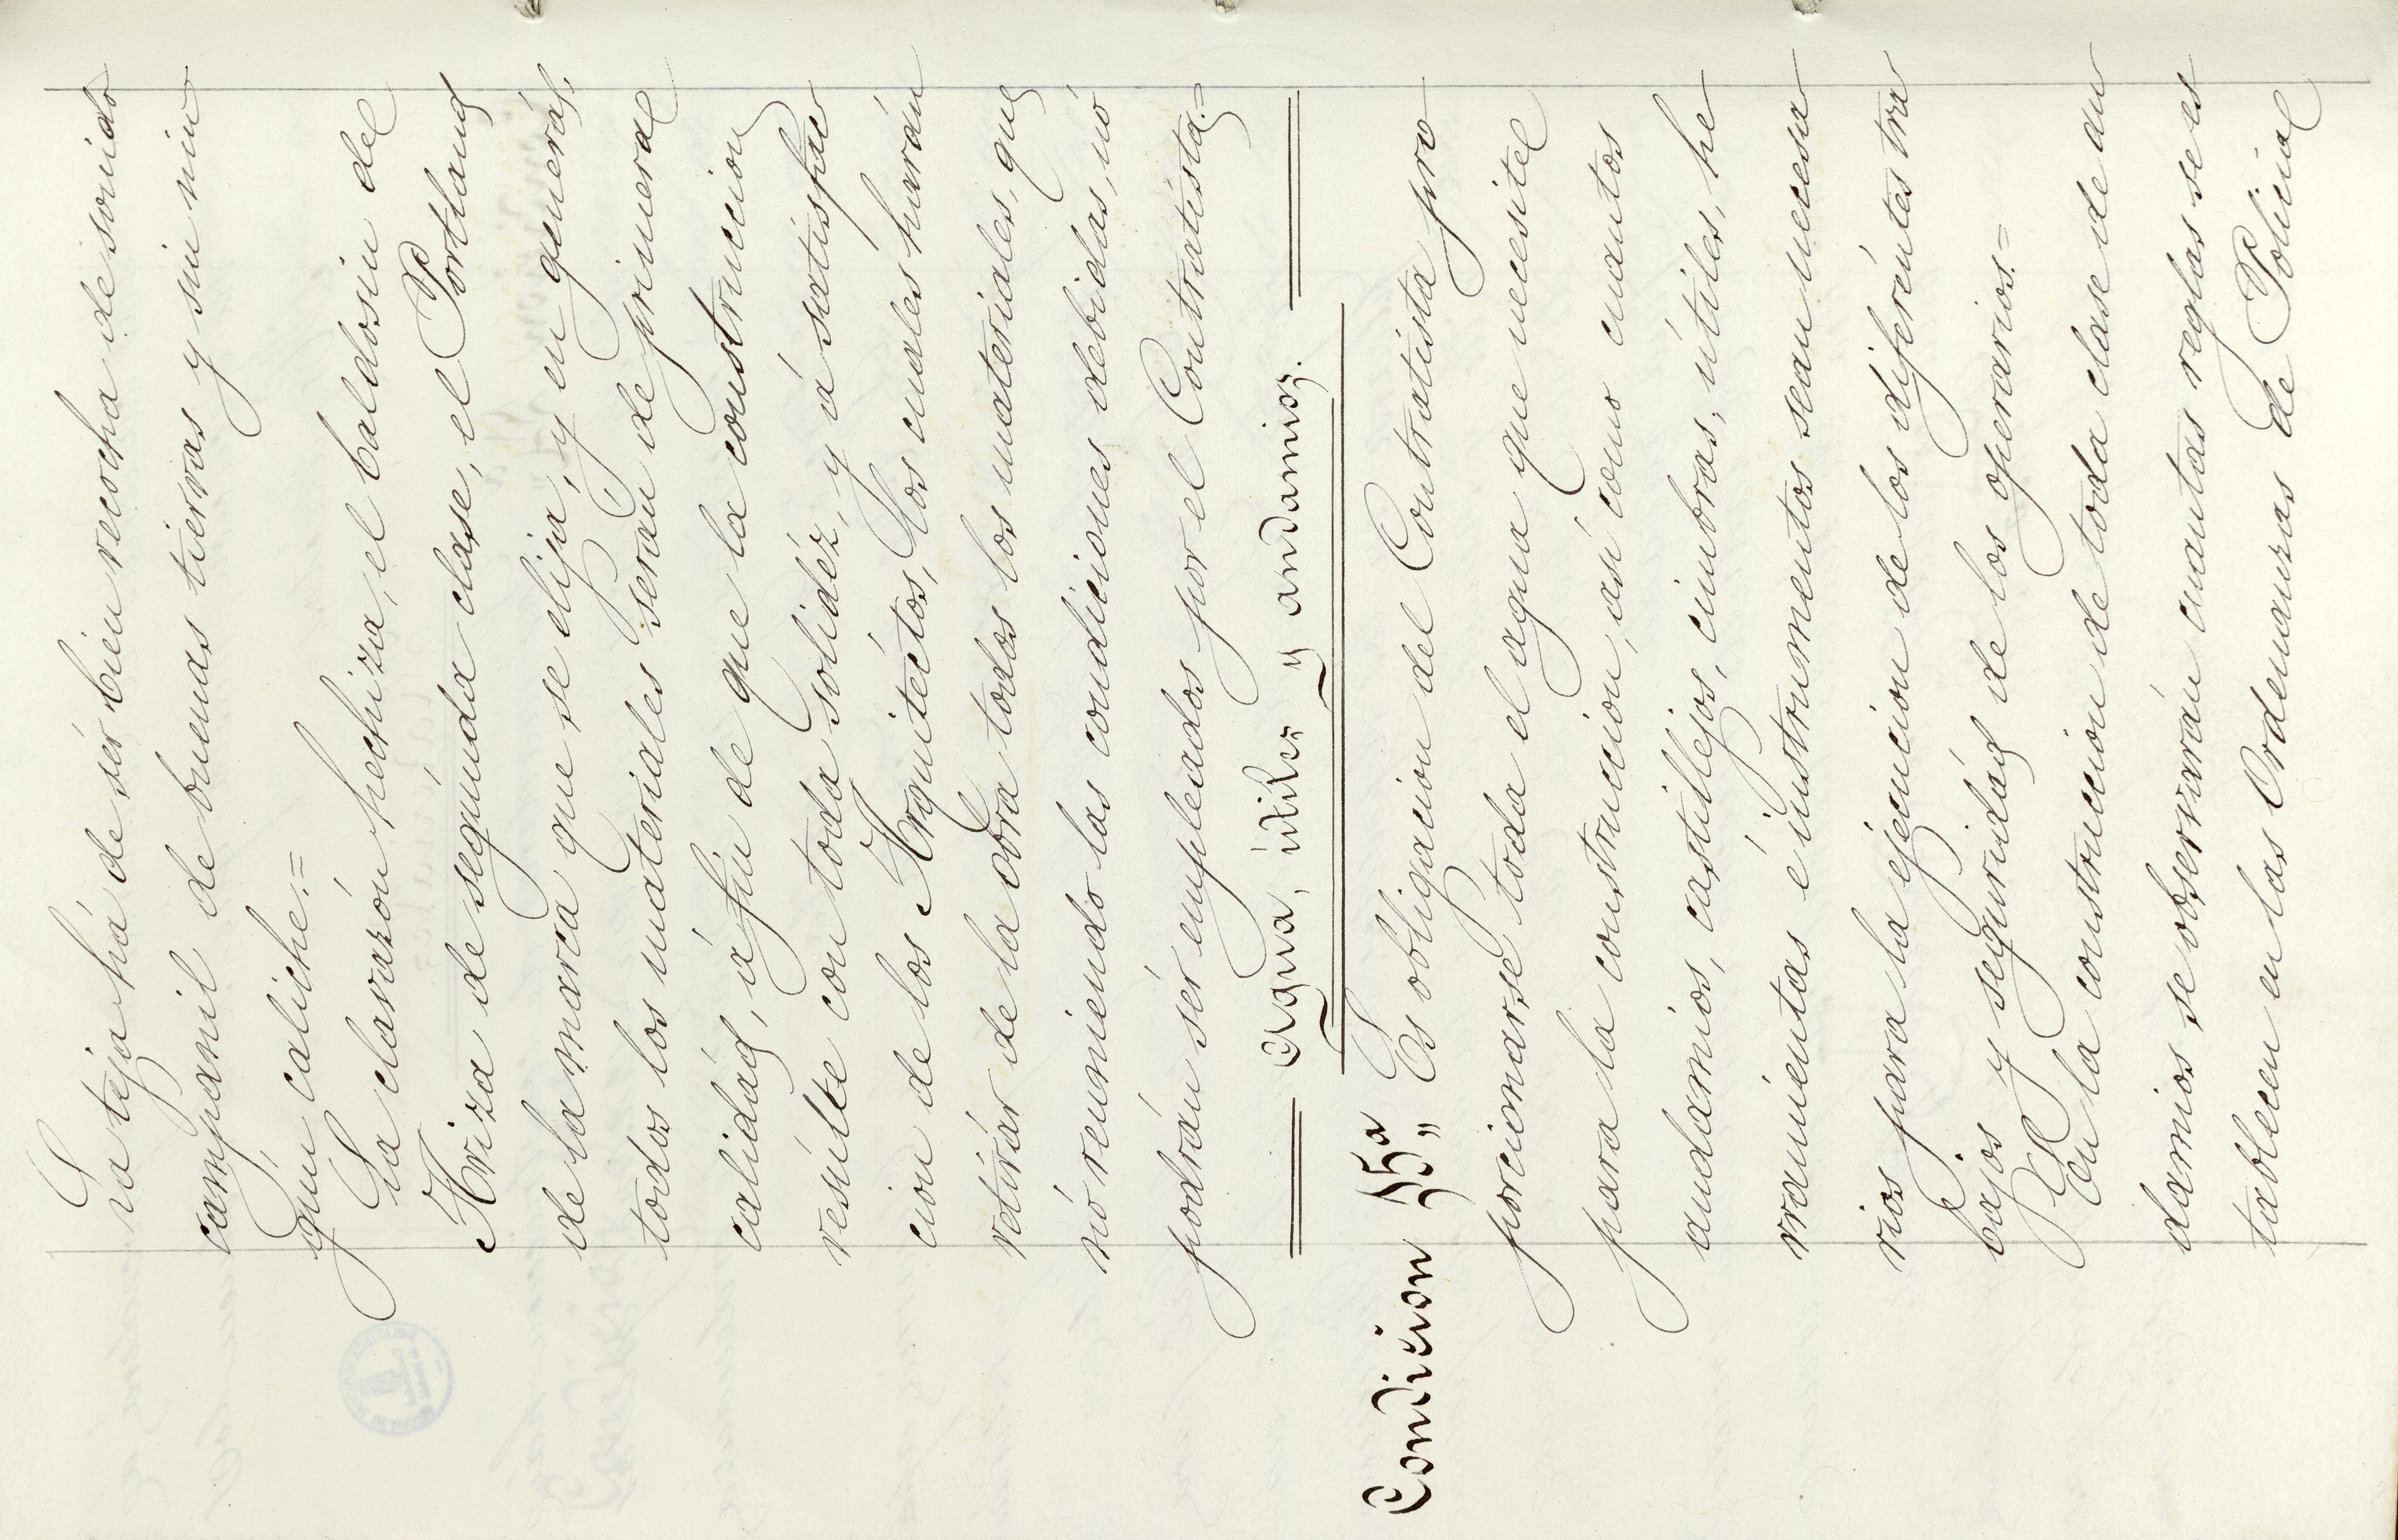 La teja há de sér bién recocha de sonido
campanil de buenas tierras y sin nin
gún caliche.=
La clavazón hechiza, el baldosin de
Ariza de segúnda clase, el Portland
de la marca que se elija, y en generál,
todos los materiales serán de primera
calidád, á fin de que la construccion
resúlte con toda solidéz, y á satisfac
cion de los Arquitéctos, los cuales harán
retirár de la obra todos los materiales, que
nó reuniendo las condiciones debidas, nó
podrán sér empleados por el Contratísta.=
Agua, útiles y andamios.
Condicion 55ª„ Es obligacion del Contratista pro
porcionarse toda el agua que necesite
para la construccion, así como cuantos
andamios, castillejos, cimbras, útiles, he
rramiéntas é instrumentos sean necesa
rios para la ejécucion de los diferéntes tra
bajos y seguridád de los operarios.=
En la construccion de toda clase de an
damios se observarán cuantas reglas se es
tablecen en las Ordenanzas de Policia